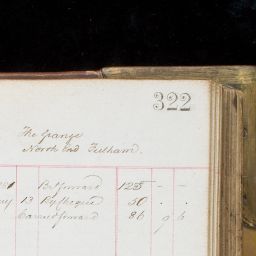 322
The Grange
North End Fulham.
Bt forward 125 - -
13 By Cheque 50 . -
Carried forward 86 9 6